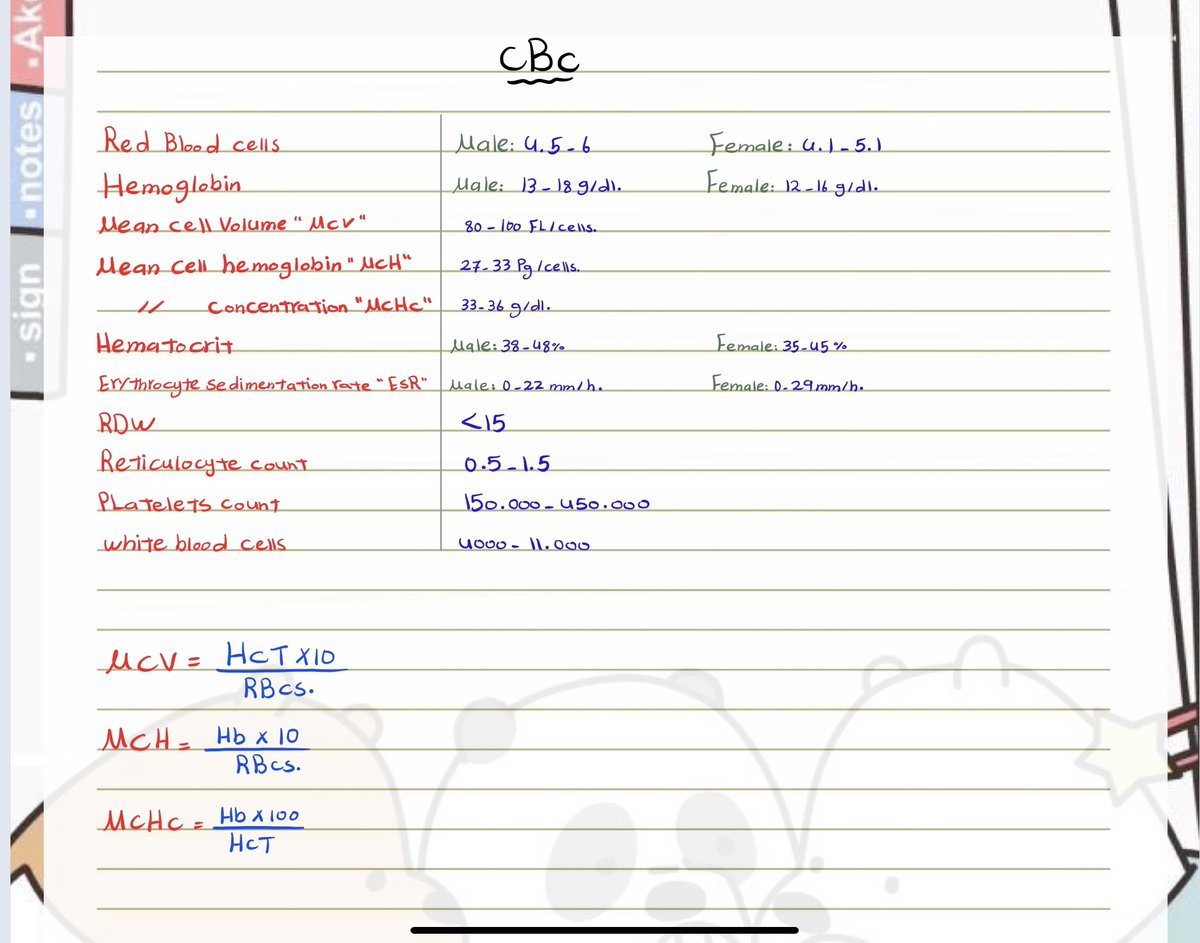 • Ak
• notes
• sign
CBC
Red Blood cells Male: 4.5-6 Female: 4.1-5.1
Hemoglobin Male: 13-18 g/dl. Female: 12-16 g/dl.
Mean cell Volume "MCV" 80-100 FL/cells.
Mean cell hemoglobin "MCH" 27-33 Pg/cells.
// Concentration "MCHC" 33-36 g/dl.
Hematocrit Male: 38-48% Female: 35-45%
Erythrocyte sedimentation rate "ESR" Male: 0-22 mm/h. Female: 0-29 mm/h.
RDW <15
Reticulocyte count 0.5-1.5
Platelets count 150.000-450.000
white blood cells 4000-11.000
MCV = HCT x10
RBCs.
MCH = Hb x 10
RBCs.
MCHC = Hb x 100
HCT